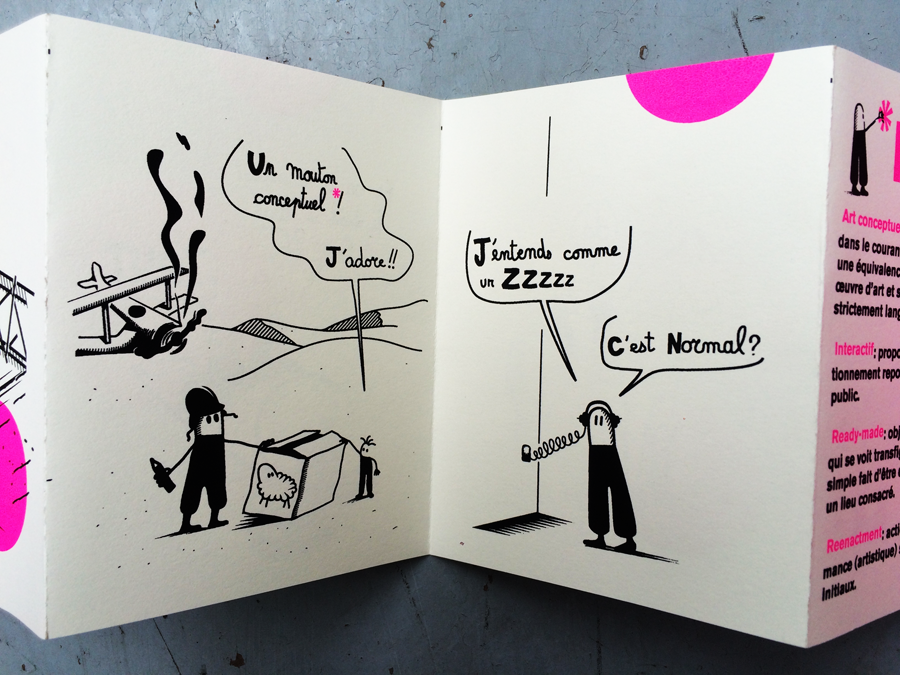 Un mouton
conceptuel *!
J'adore!!
J'éntends comme
un ZZZZZ
C'est Normal?
Art conceptue
dans le couran
une équivalenc
œuvre d'art et s
strictement lang
Interactif: propo
tionnement repo
public.
Ready-made: obj
qui se voit transfi
simple fait d'être
un lieu consacré.
Reenactment: acti
mance (artistique)
initiaux.